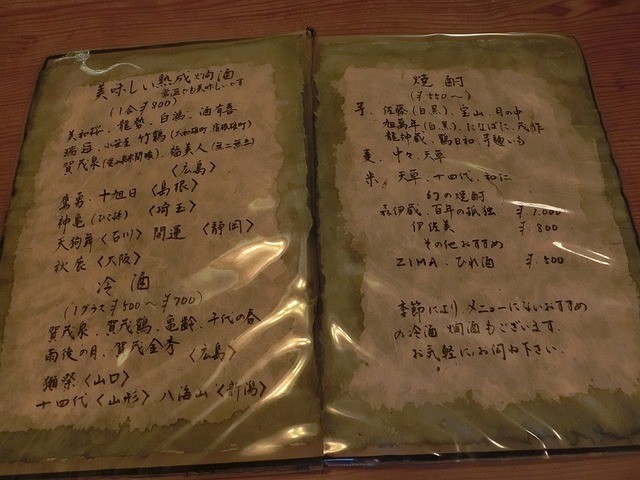 美味しい熟成燗酒
常温でも美味しいです
(1合¥800)
美和桜、龍勢、白鴻、酒有喜
瑞冠、小笹屋竹鶴(大和雄町 宿根雄町)
賀茂泉、福美人
〈広島〉
十旭日〈島根〉
神亀(ひこ孫)〈埼玉〉
天狗舞〈石川〉 開運〈静岡〉
秋鹿〈大阪〉
冷酒
(1グラス¥500〜¥700)
賀茂泉、賀茂鶴、亀齢、千代の春
雨後の月、賀茂金秀〈広島〉
獺祭〈山口〉
十四代〈山形〉 八海山〈新潟〉
焼酎
(¥550〜)
芋、佐藤(白.黒)、宝山、月の中
旭萬年(白.黒)、になはに、茂作
龍神蔵、鶴日和、芋麹いも
麦、中々、天草
米、天草、十四代、和仁
幻の焼酎
森伊蔵、百年の孤独 ¥1,000
伊佐美 ¥800
その他おすすめ
ZIMA、ひれ酒 ¥500
季節により、メニューにないおすすめ
の冷酒 燗酒もございます。
お気軽にお伺ね下さい.